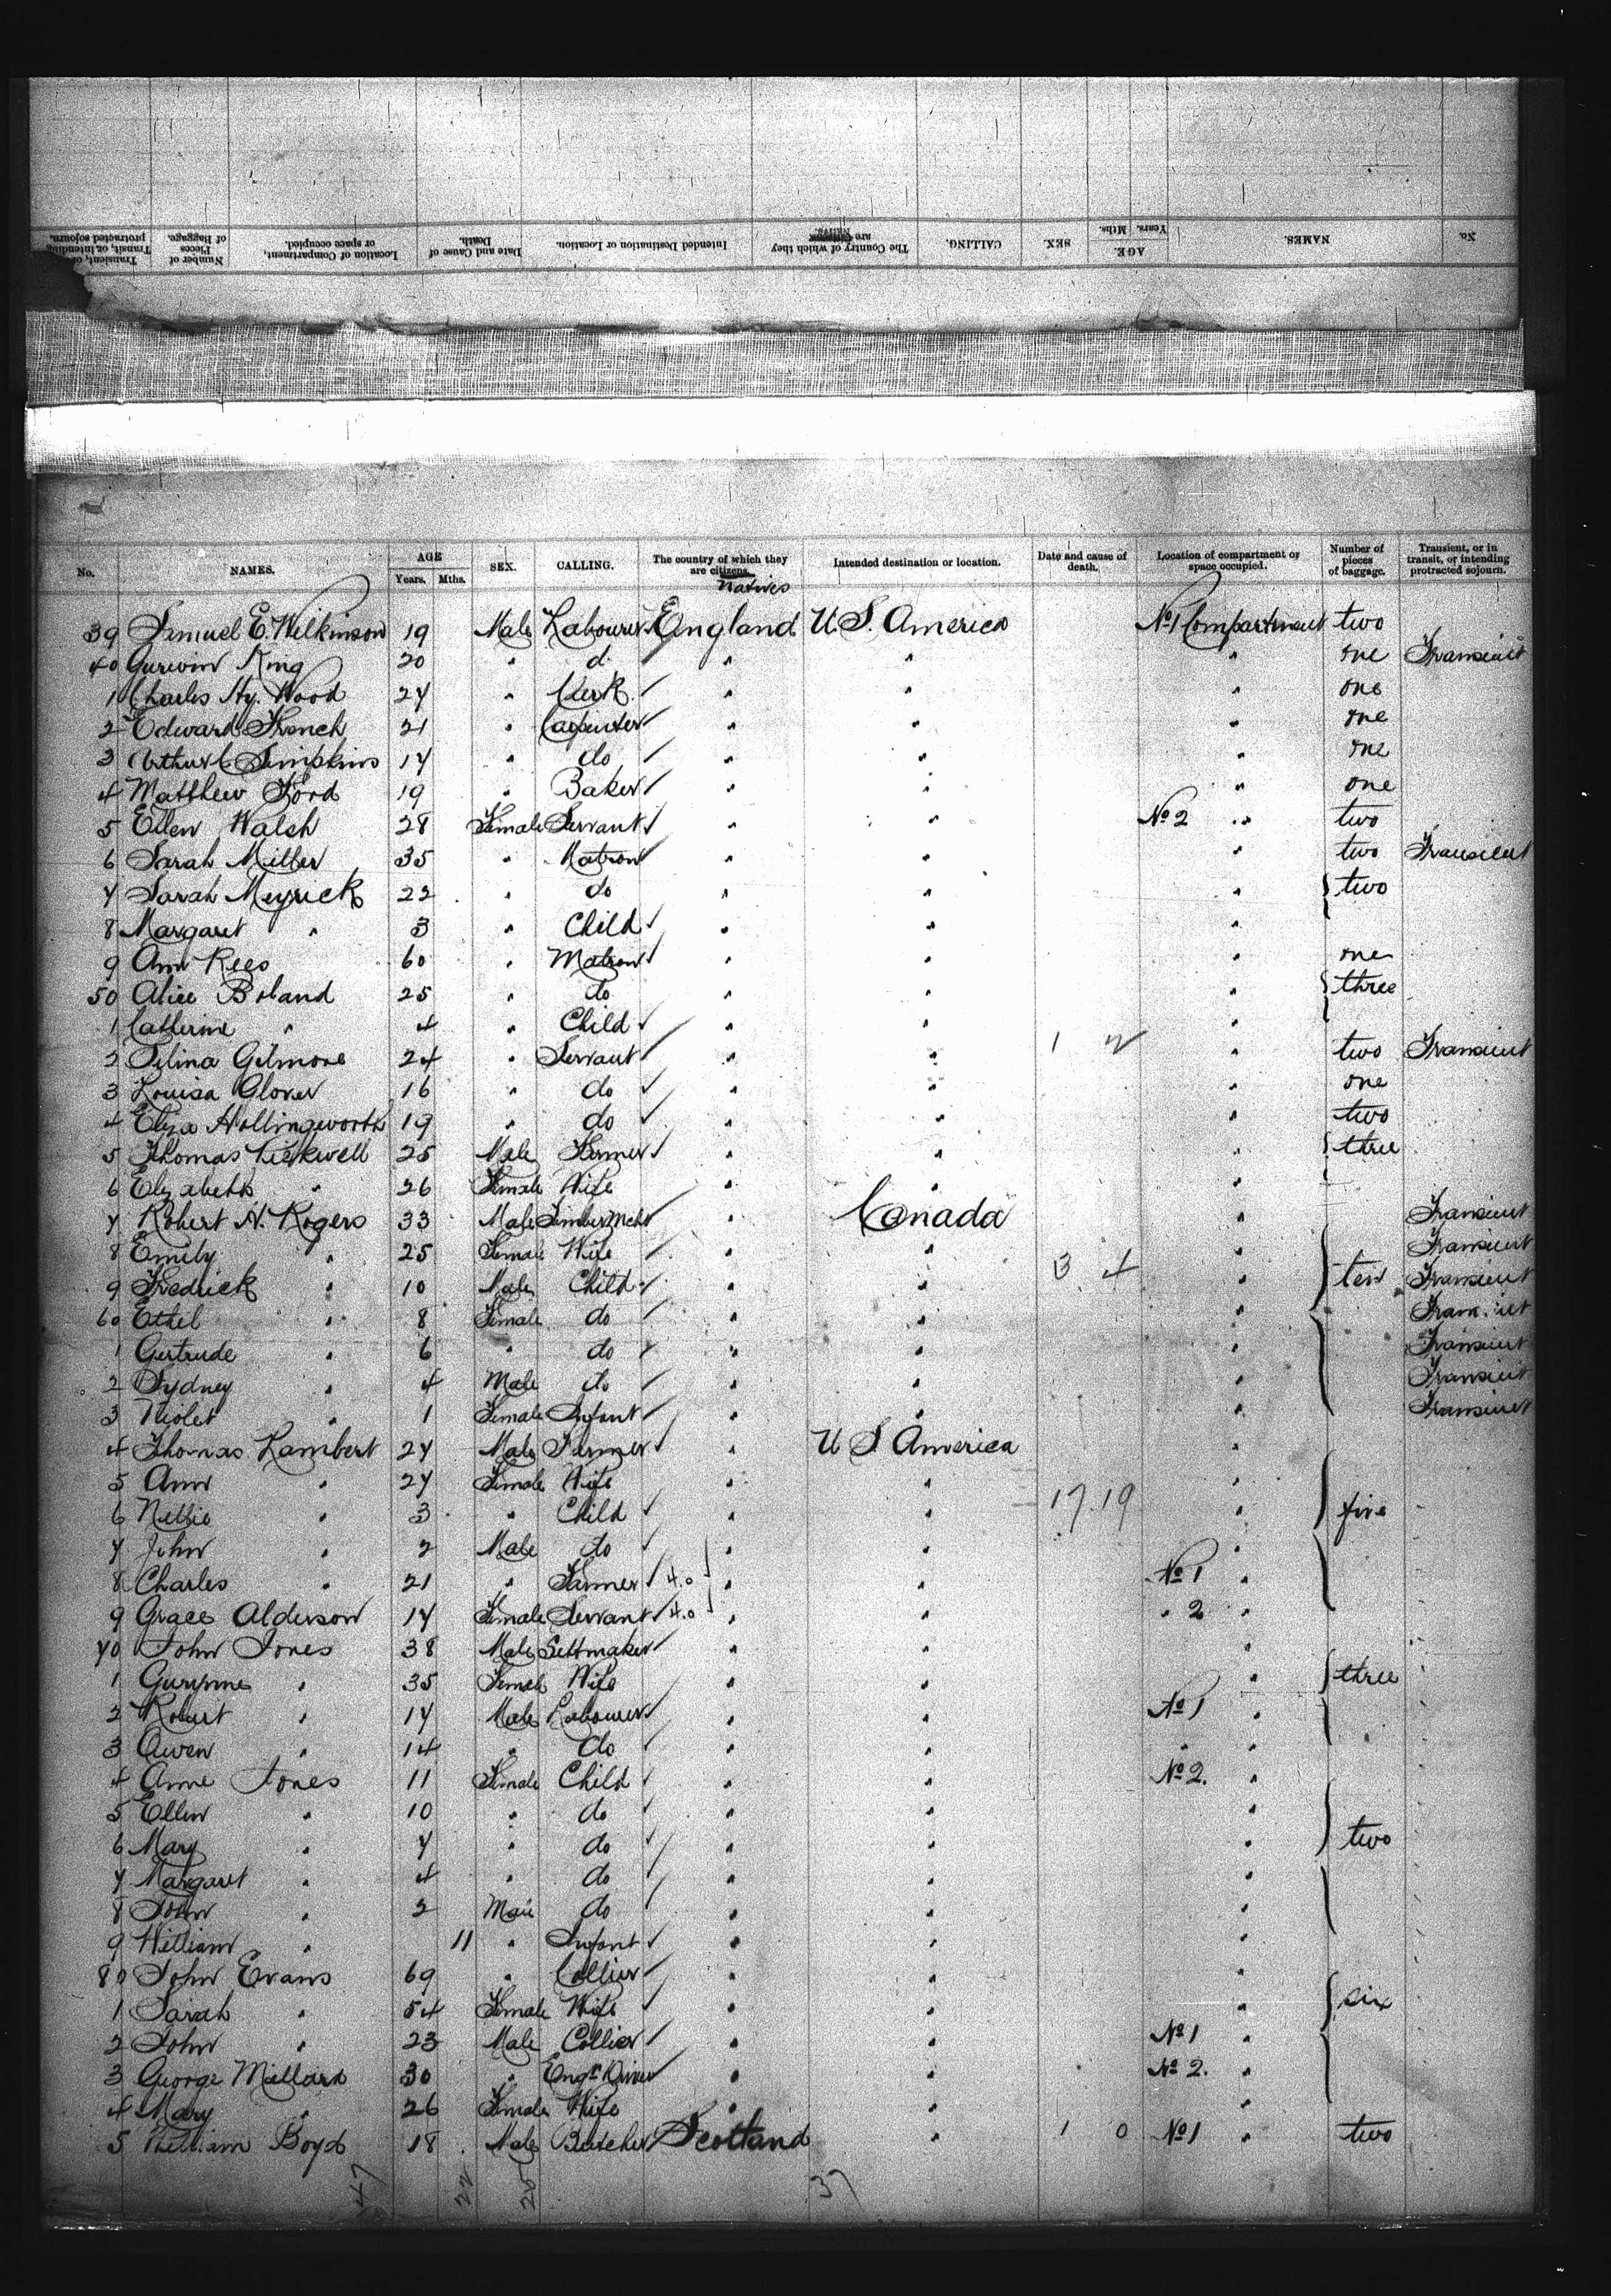 Transient, or in Transit, or intending protracted sojourn. Number of Pieces of Baggage. Location of Compartment, or space occupied. Date and Cause of Death. Intended Destination or Location. The Country of which they are CALLING. SEX. AGE. Years. Mths. NAMES. No.
No. NAMES. AGE Years. Mths. SEX. CALLING. The country of which they are citizens. Natives Intended destination or location. Date and cause of death. Location of compartment or space occupied. Number of pieces of baggage. Transient, or in transit, or intending protracted sojourn.
39 Samuel E. Wilkinson 19 Male Labourer England U.S. America No 1 Compartment two
40 King 20 " d. " " " one Transient
1 Charles Hy. Wood 24 " Clerk " " " one
2 Edward French 21 " Carpenter " " " one
3 Arthur Simpkins 17 " do " " " one
4 Matthew Ford 19 " Baker " " " one
5 Ellen Walsh 28 Female Servant " " No 2 " two
6 Sarah Miller 35 " Matron " " " two Transient
7 Sarah Meyrick 22 " do " " " two
8 Margaret " 3 " Child " " "
9 Ann Rees 60 " Matron " " " one
50 Alice Boland 25 " do " " " three
1 Catherine " 4 " Child " " "
2 Selina Gilmore 24 " Servant " " 1 2 " two Transient
3 Louisa Glover 16 " do " " " one
4 Eliza Hollingworth 19 " do " " " two
5 Thomas 25 Male Farmer " " " three
6 Elizabeth " 26 Female Wife " " "
7 Robert H. Rogers 33 Male Timber Mcht " Canada " Transient
8 Emily " 25 Female Wife " " " Transient
9 Fredrick " 10 Male Child " " 3 4 " ten Transient
60 Ethel " 8 Female do " " " Transient
1 Gertrude " 6 " do " " " Transient
2 Sydney " 4 Male do " " " Transient
3 Violet " 1 Female Infant " " " Transient
4 Thomas Lambert 24 Male Farmer " U S America "
5 Ann " 24 Female Wife " " "
6 Nellie " 3 " Child " " 17.19 " five
7 John " 2 Male do " " "
8 Charles " 21 " Farmer 4.0 " " No 1 "
9 Grace Alderson 17 Female Servant 4.0 " " " 2 "
70 John Jones 38 Male Settmaker " " "
1 " 35 Female Wife " " " three
2 Robert " 17 Male Labourer " " No 1 "
3 Owen " 14 " do " " " "
4 Anne Jones 11 Female Child " " No 2. "
5 Ellen " 10 " do " " "
6 Mary " 7 " do " " " two
7 Margaret " 4 " do " " "
8 John " 2 Male do " " "
9 William " 11 " Infant " " "
80 John Evans 69 " Collier " " "
1 Sarah " 54 Female Wife " " " six
2 John " 23 Male Collier " " No 1 "
3 George Millard 30 " Engn Driver " " No 2. "
4 Mary " 26 Female Wife " " "
5 William Boyd 18 Male Butcher Scotland " 1 0 No 1 " two
47 22 25 37